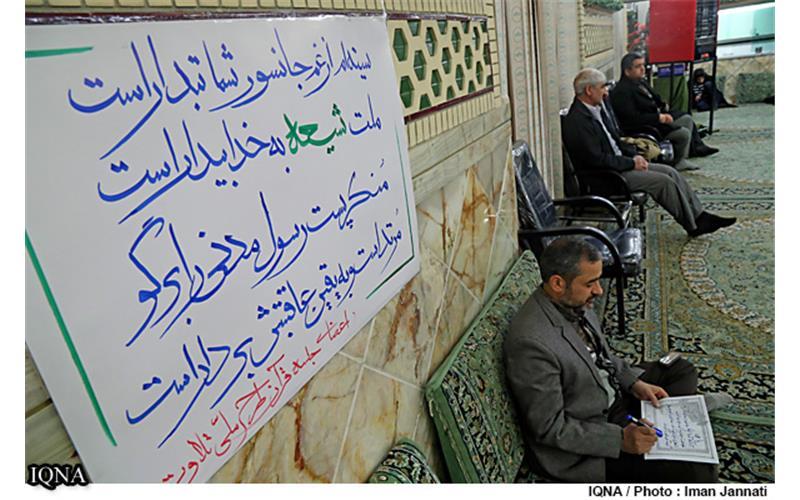 IQNA
سینه‌ام از غم جانسوز شما تبدار است
ملت شیعه به خدا بیدار است
مُنکر بست رسول مدنی را برگو
مُرتد است و به یقین عاقبتش بر دار است
اعضای جلسه قرآن طرح ملی تلاوت
IQNA
IQNA / Photo : Iman Jannati